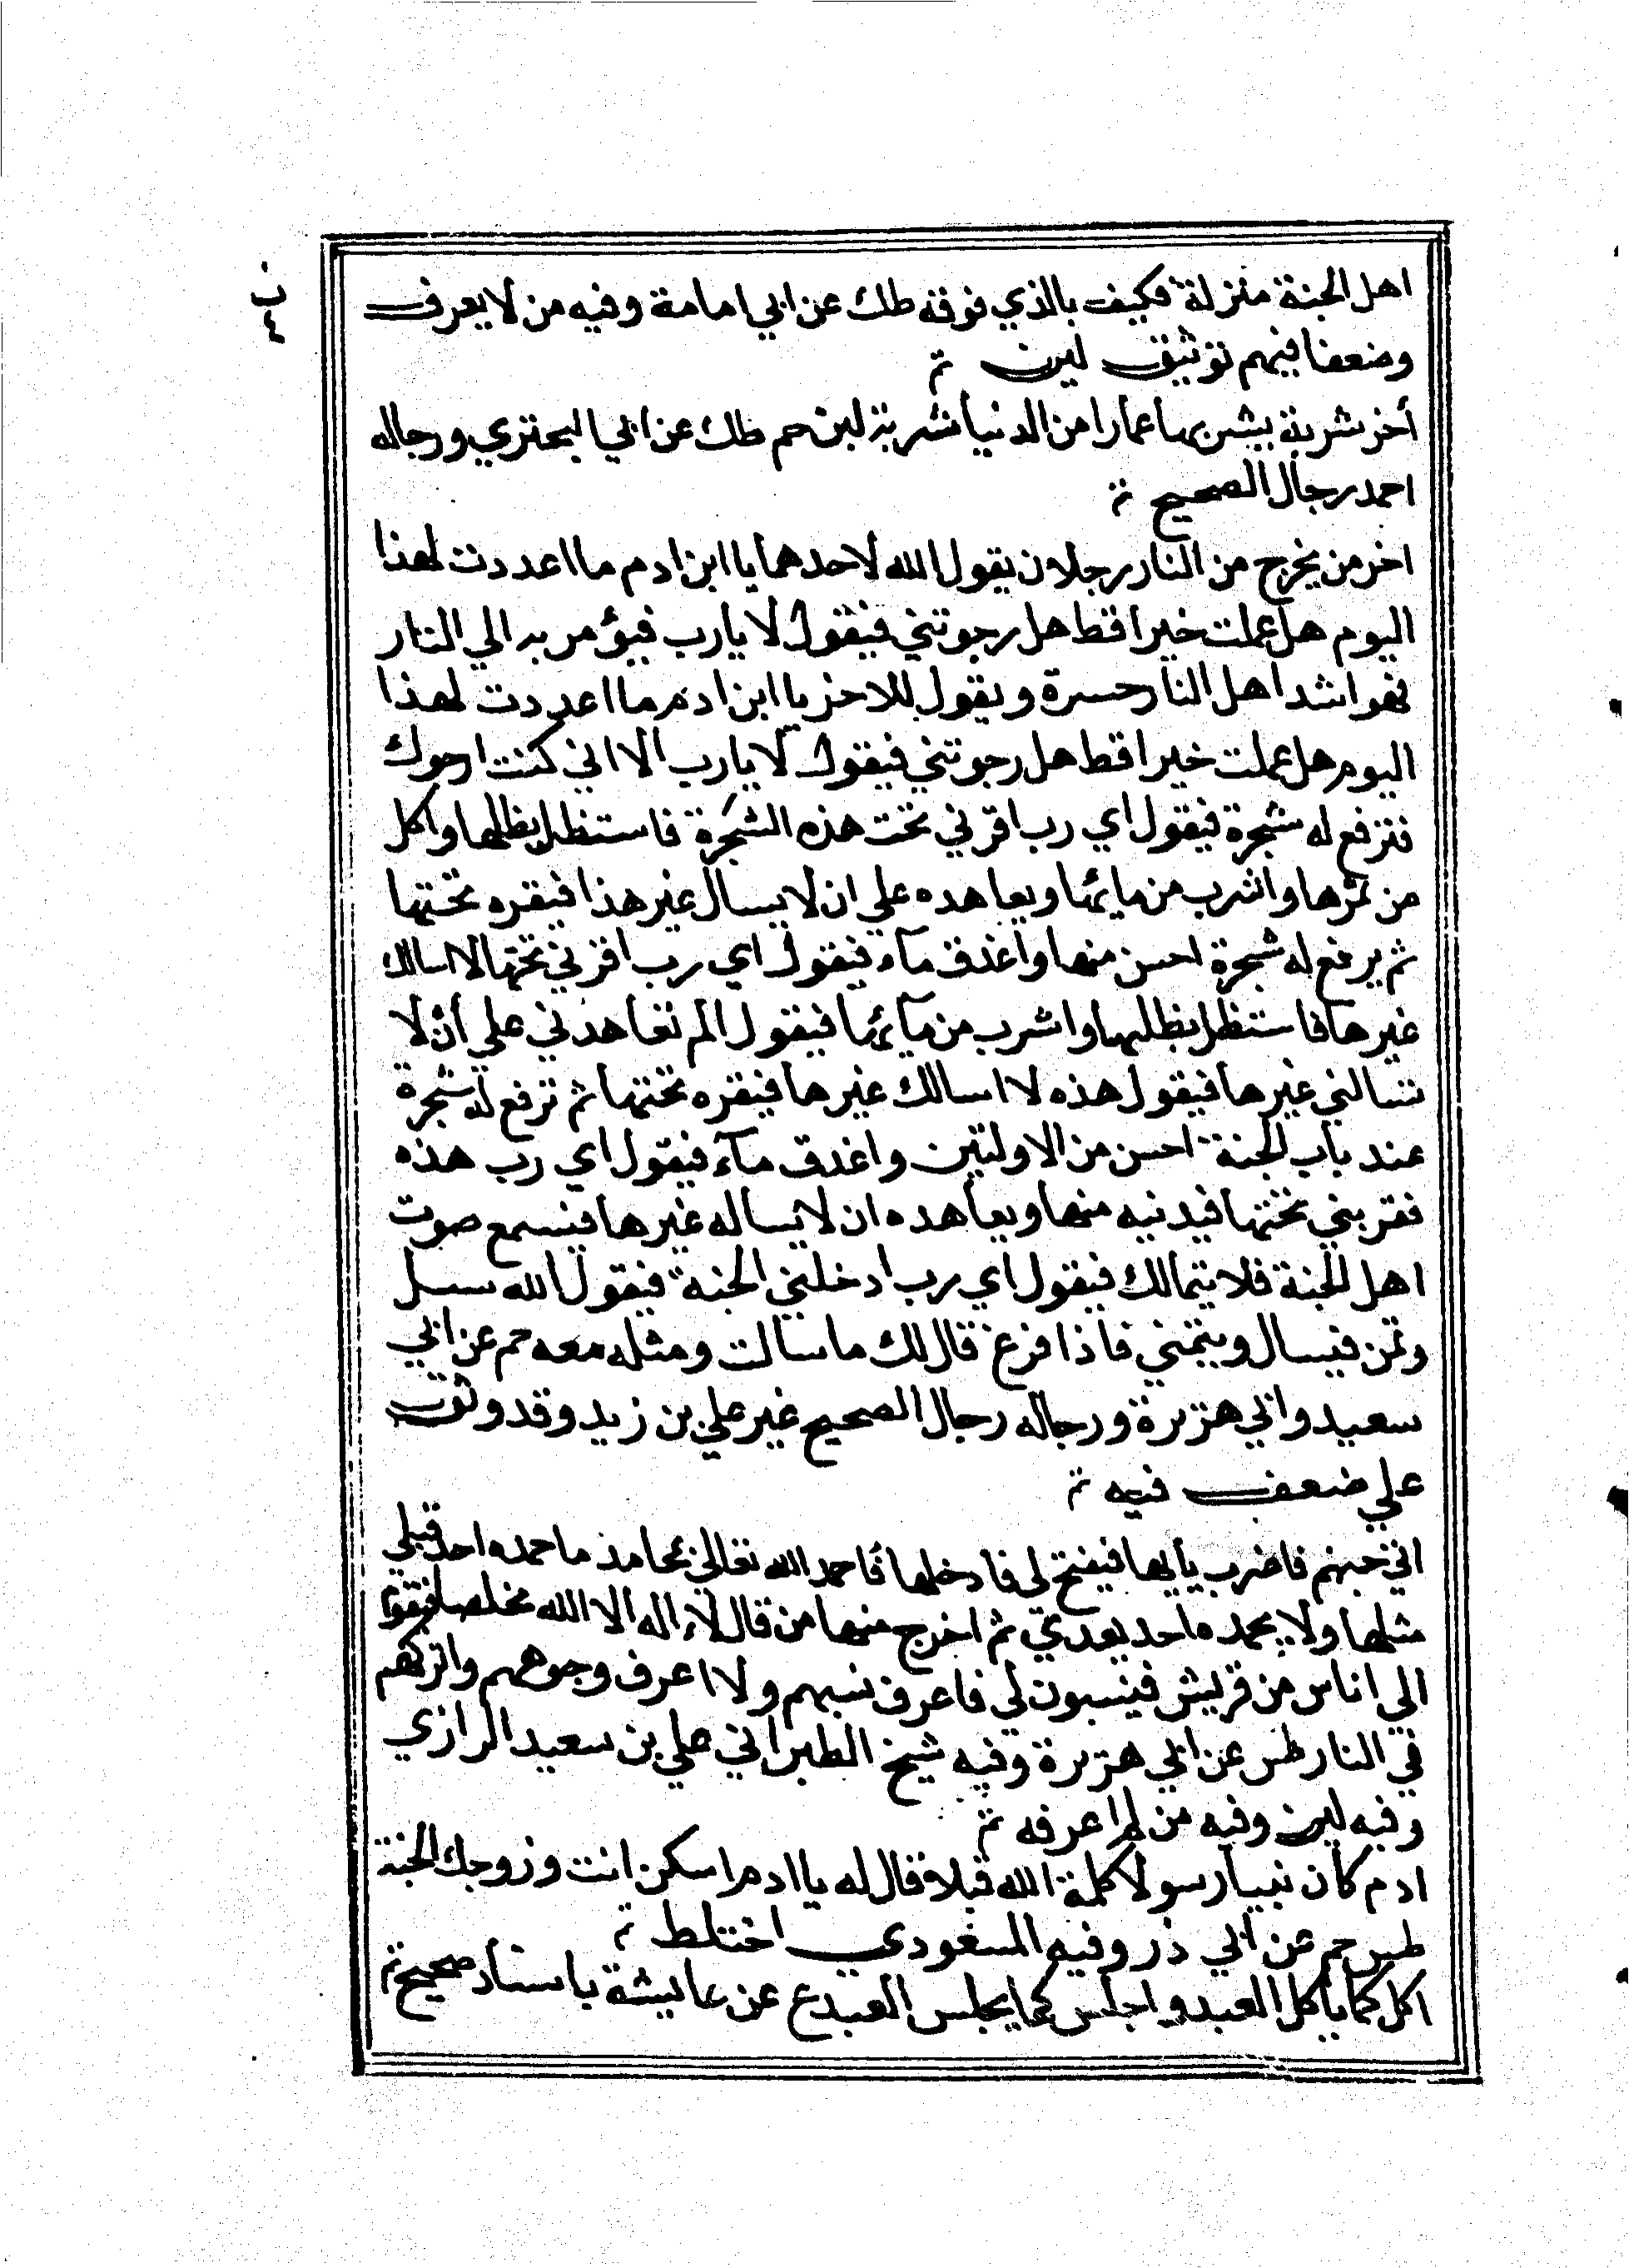 اهل الجنة منزلة فكيف بالذي فوقه طك عن ابي امامة وفيه من لا يعرف
وضعفا فيهم توثيق لين تم
أخر شربة يشربها عمارا من الدنيا شربة لبن حم طك عن ابي البحتري ورجاله
احمد رجال الصحيح تم
اخر من يخرج من النار رجلان يقول الله لاحدهما يا ابن ادم ما اعددت لهذا
اليوم هل عملت خيرا قط هل رجوتني فيقول لا يا رب فيؤمر به الي النار
فهو اشد اهل النار حسرة ويقول للاخر يا ابن ادم ما اعددت لهذا
اليوم هل عملت خيرا قط هل رجوتني فيقول لا يا رب الا اني كنت ارجوك
فترفع له شجرة فيقول اي رب اقرني تحت هذه الشجرة فاستظل بظلها واكل
من ثمرها واشرب من مائها ويعاهده علي ان لا يسال غير هذا فيقره تحتها
ثم يرفع له شجرة احسن منها واغدق ماء فيقول اي رب اقرني تحتها لا اسالك
غيرها فاستظل بظلها واشرب من مآئها فيقول الم تعاهدني علي أن لا
تسالني غيرها فيقول هذه لا اسالك غيرها فيقره تحتها ثم ترفع له شجرة
عند باب الجنة احسن من الاولتين واغدق مآء فيقول اي رب هذه
فقربني تحتها فيدنيه منها ويعاهده ان لا يساله غيرها فيسمع صوت
اهل الجنة فلا يتمالك فيقول اي رب ادخلني الجنة فيقول الله سل
وتمن فيسال ويتمني فاذا فرغ قال لك ما سالت ومثله معه حم عن ابي
سعيد وابي هريرة ورجاله رجال الصحيح غير علي بن زيد وقد وثق
علي ضعف فيه تم
اتي جهنم فاضرب بابها فيفتح لي فادخلها فاحمد الله تعالي محامد ما حمده احد قبلي
مثلها ولا يحمده احد بعدي ثم اخرج منها من قال لا اله الا الله مخلصا فيقوم
الي اناس من قريش فينسبون لي فاعرف نسبهم ولا اعرف وجوههم واتركهم
في النار طس عن ابي هريرة وفيه شيخ الطبراني علي بن سعيد الرازي
وفيه لين وفيه من لم اعرفه تم
ادم كان نبيا رسولا كلمة الله قبلا فقال له يا ادم اسكن انت وزوجك الجنة
طس حم عن ابي ذر وفيه المسعودي اختلط تم
اكل كما ياكل العبد واجلس كما يجلس العبد ع عن عايشة باسناد صحيح تم